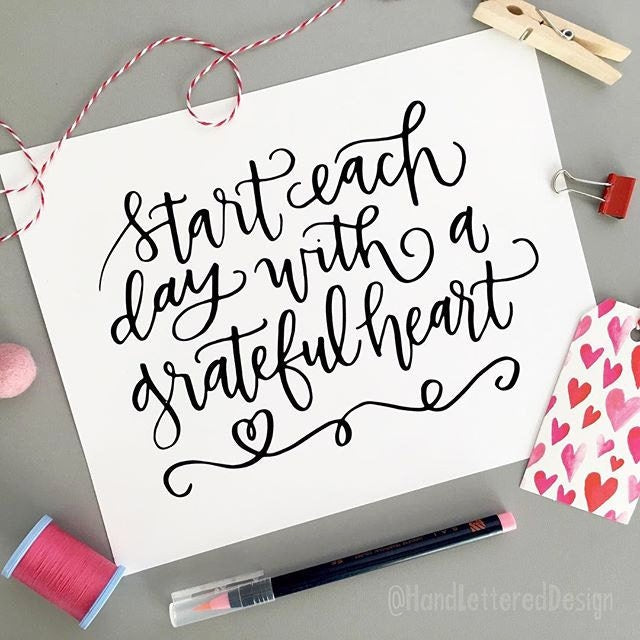 start each
day with a
grateful heart
@HandLetteredDesign